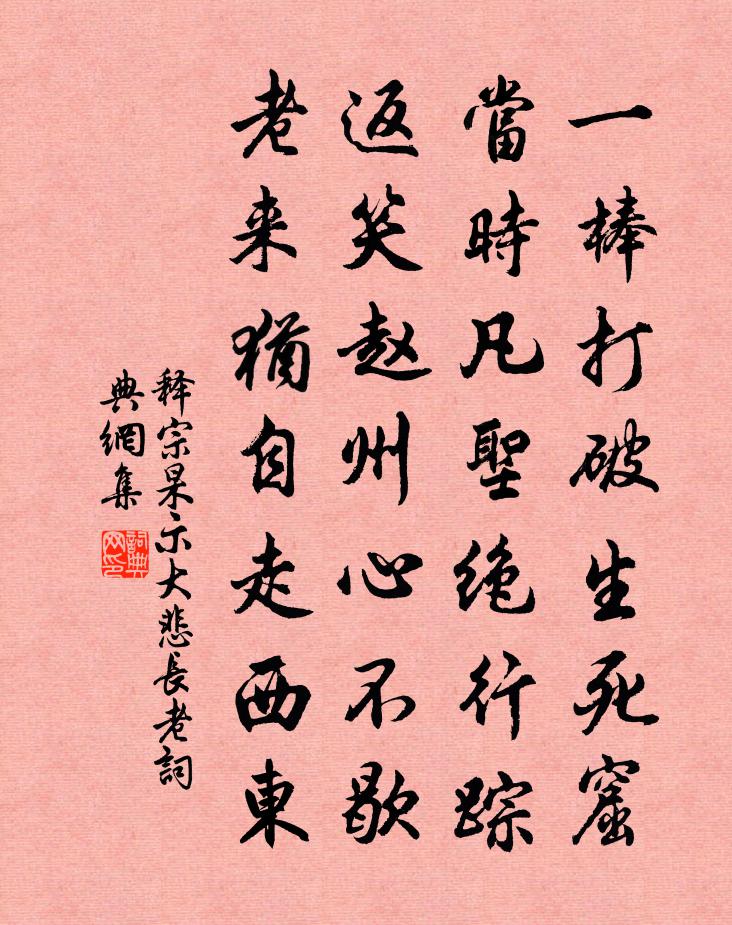 一棒打破生死窟
當時凡聖绝行踪
返笑赵州心不歇
老来猶自走西東
释宗杲示大悲長老詞
典網集
詞典网印